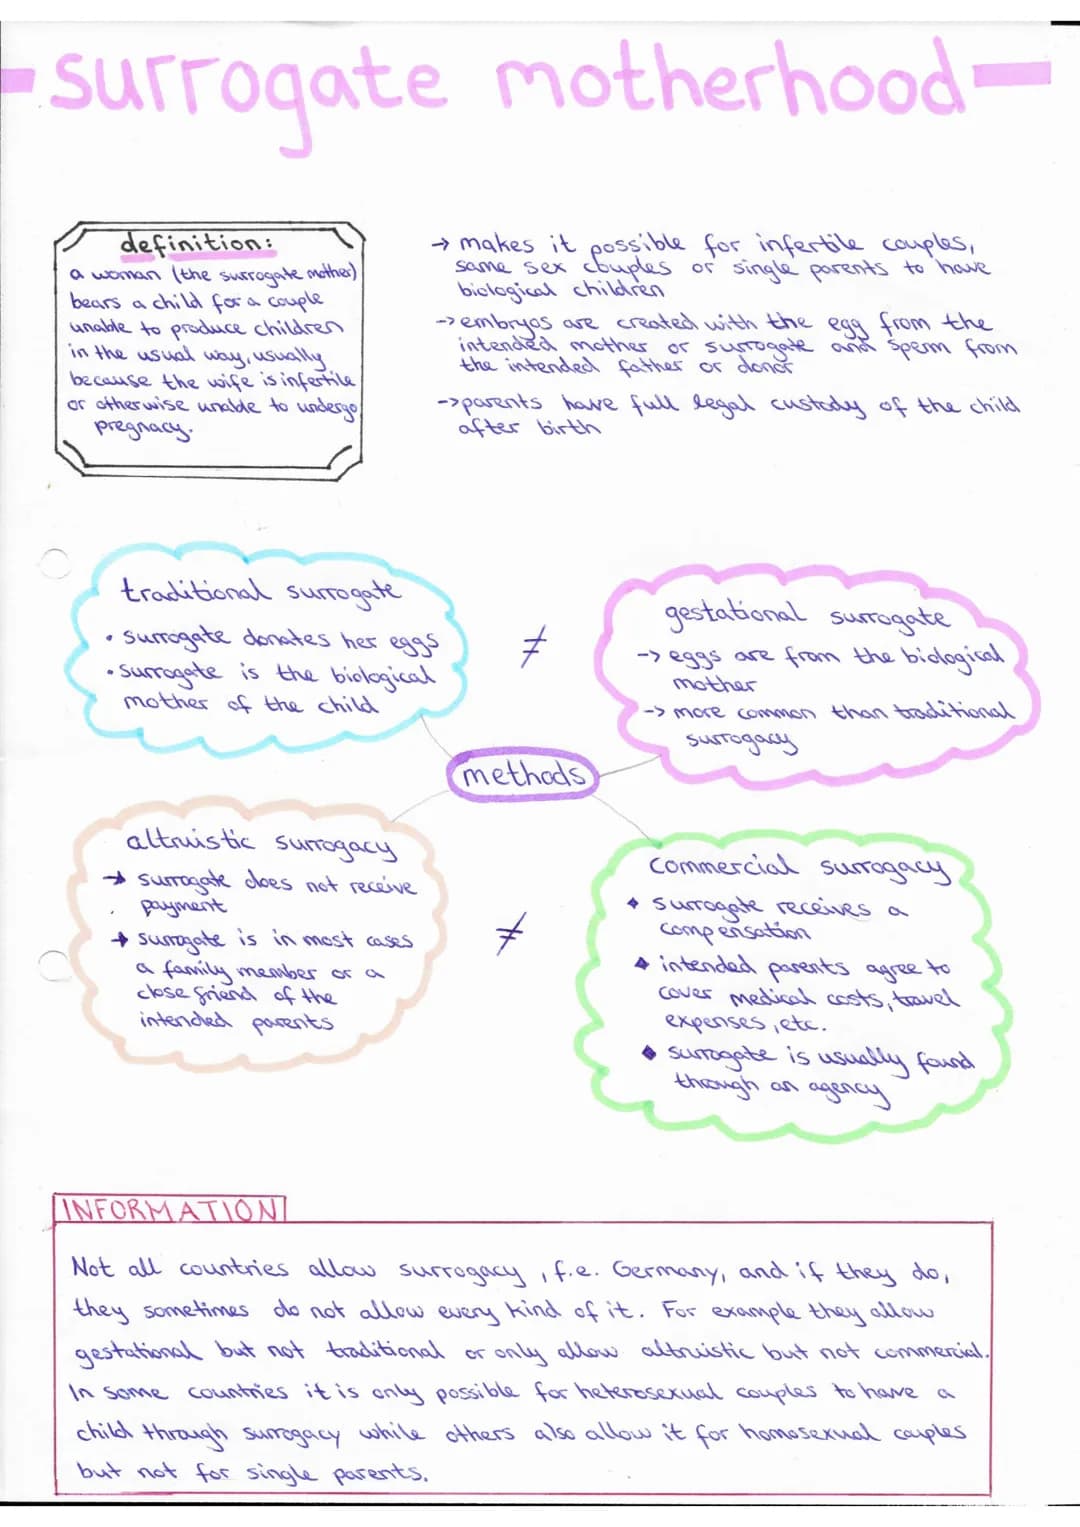 surrogate motherhood
definition:
a woman (the surrogate mother)
bears a child for a couple
unable to produce children
in the usual way, usually
because the wife is infertile
or otherwise unable to undergo
pregnacy.
→ makes it possible for infertile couples,
same sex couples or single parents to have
biological children
→ embryos are created with the egg from the
intended mother or surrogate and sperm from
the intended father or donor
→ parents have full legal custody of the child
after birth
traditional surrogate
• surrogate donates her eggs
• surrogate is the biological
mother of the child
≠
gestational surrogate
→ eggs are from the biological
mother
→ more common than traditional
surrogacy
methods
altruistic surrogacy
→ surrogate does not receive
payment
→ surrogate is in most cases
a family member or a
close friend of the
intended parents
≠
commercial surrogacy
◆ surrogate receives a
compensation
◆ intended parents agree to
cover medical costs, travel
expenses, etc.
◆ surrogate is usually found
through an agency
INFORMATION
Not all countries allow surrogacy, f.e. Germany, and if they do,
they sometimes do not allow every kind of it. For example they allow
gestational but not traditional or only allow altruistic but not commercial.
In some countries it is only possible for heterosexual couples to have a
child through surrogacy while others also allow it for homosexual couples
but not for single parents.